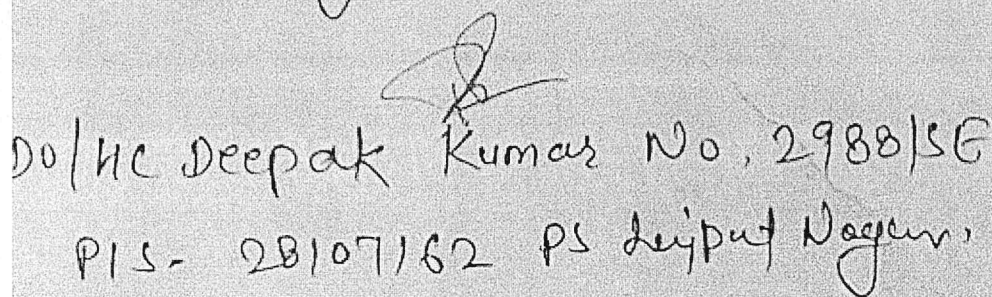 DO/HC Deepak Kumar No. 2988/SE
PIS- 28107162 PS Lajpat Nagar,